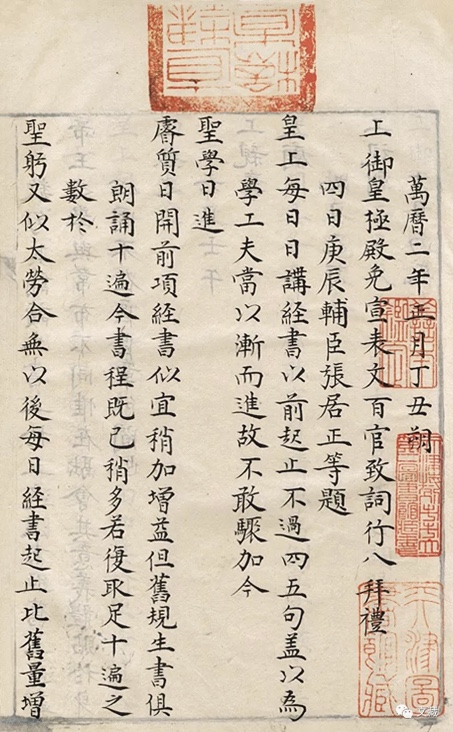 萬曆二年正月丁丑朔
上御皇極殿免宣表文百官致詞行八拜禮
四日庚辰輔臣張居正等題
皇上每日日講經書以前起止不過四五句盖以為
學工夫當以漸而進故不敢驟加今
聖學日進
睿質日開前項經書似宜稍加增益但舊規生書俱
朗誦十遍今書程既已稍多若復取足十遍之
數於
聖躬又似太勞合無以後每日經書起止比舊量增